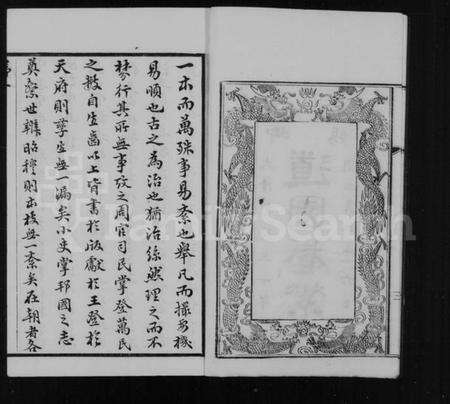 一本而萬殊事易紊也舉凡而撮要機
易順也古之為治也猶治絲然理之而不
棼行其所無事攷之周官司民掌登萬民
之數自生齒以上皆書於版獻於王登於
天府則孳生無一漏矣小史掌邦國之志
奠繫世辨昭穆則本枝無一紊矣在朝者各
FamilySearch